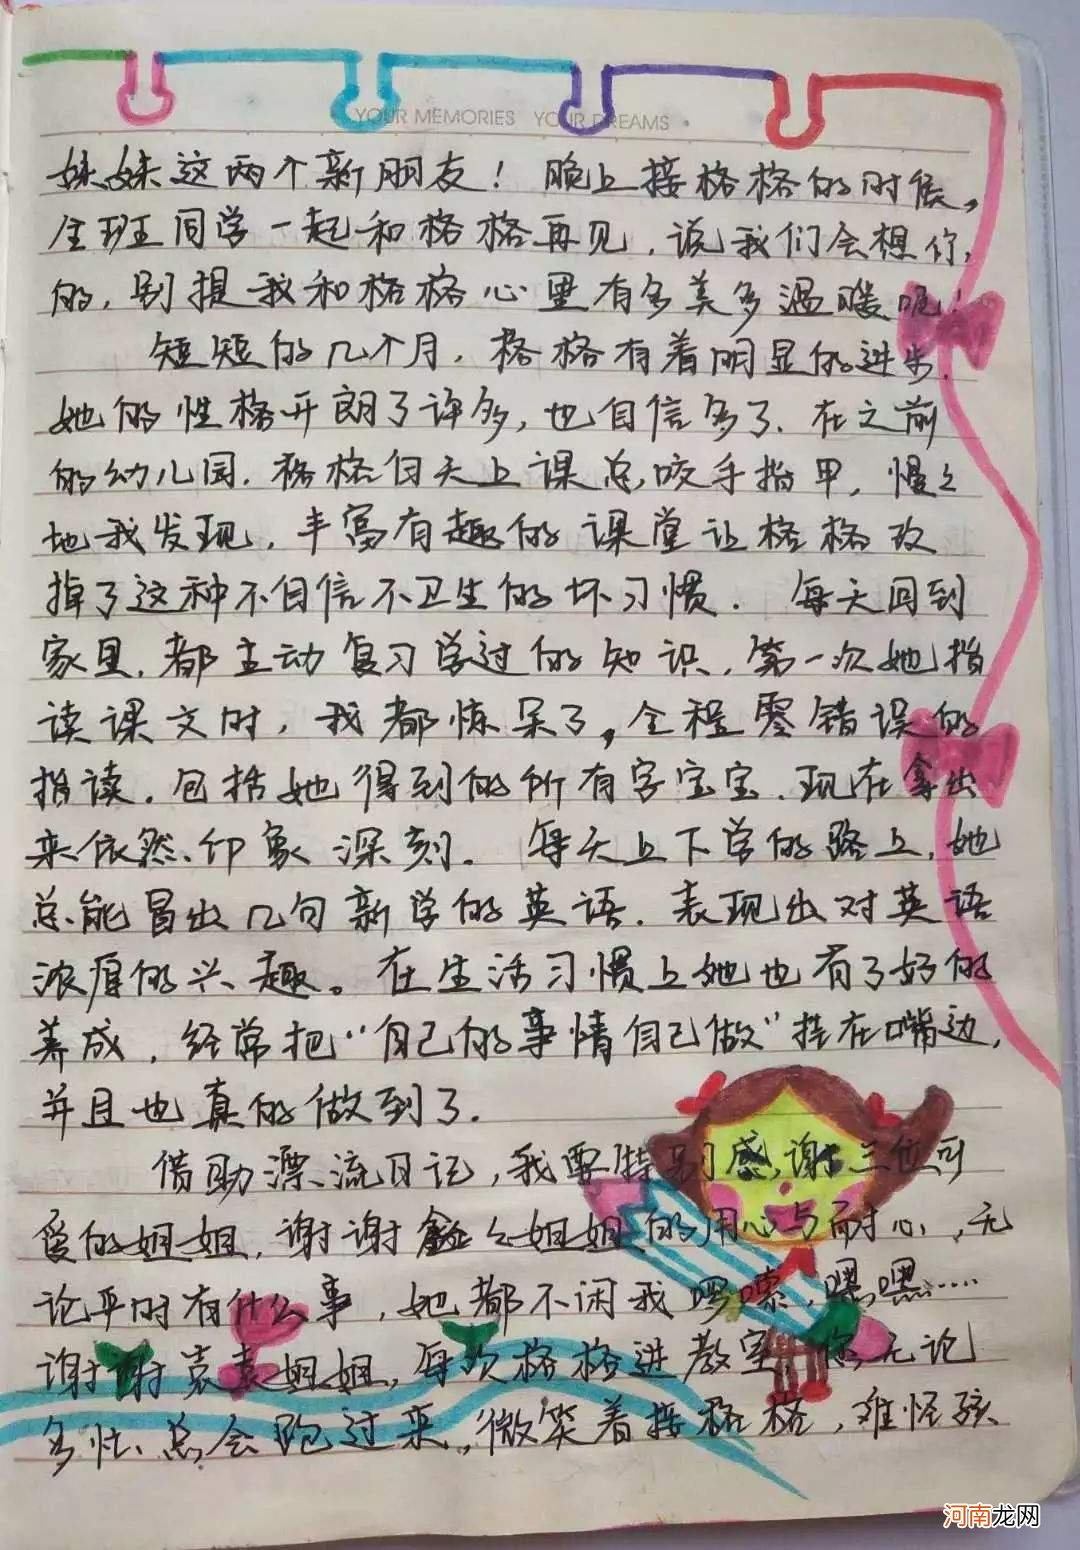 YOUR MEMORIES YOUR DREAMS
妹妹这两个新朋友！晚上接格格的时候，
全班同学一起和格格再见，说我们会想你
的，别提我和格格心里有多美多温暖呢！
短短的几个月，格格有着明显的进步，
她的性格开朗了许多，也自信多了。在之前
的幼儿园，格格白天上课总咬手指甲，慢々
地我发现，丰富有趣的课堂让格格改
掉了这种不自信不卫生的坏习惯。每天回到
家里，都主动复习学过的知识，第一次她指
读课文时，我都惊呆了，全程零错误的
指读，包括她得到的所有字宝宝，现在拿出
来依然印象深刻。每天上下学的路上，她
总能冒出几句新学的英语，表现出对英语
浓厚的兴趣。在生活习惯上她也有了好的
养成，经常把“自己的事情自己做”挂在嘴边，
并且也真的做到了。
借助漂流日记，我要特别感谢三位可
爱的姐姐，谢谢鑫么姐姐的用心与耐心，无
论平时有什么事，她都不闲我啰嗦，嘿嘿……
谢谢袁袁姐姐，每次格格进教室，您无论
多忙、总会跑过来，微笑着接格格，难怪孩
河南龙网